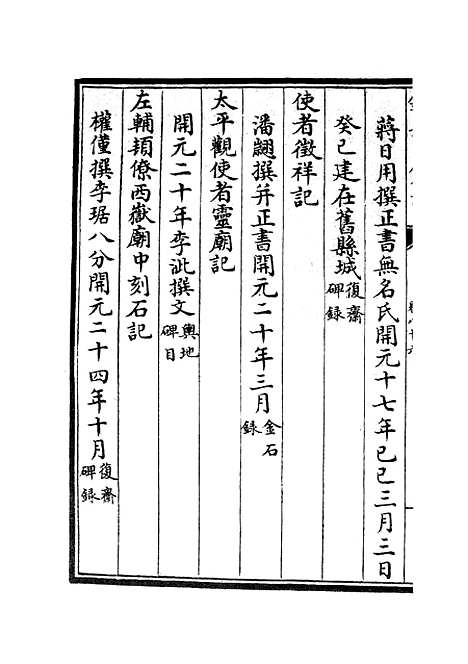 蔣日用撰正書無名氏開元十七年己巳三月三日
癸巳建在舊縣城復齋碑錄
使者徵祥記
潘翃撰并正書開元二十年三月金石錄
太平觀使者靈廟記
開元二十年李泚撰文輿地碑目
左輔頊僚西嶽廟中刻石記
權僅撰李琚八分開元二十四年十月復齋碑錄